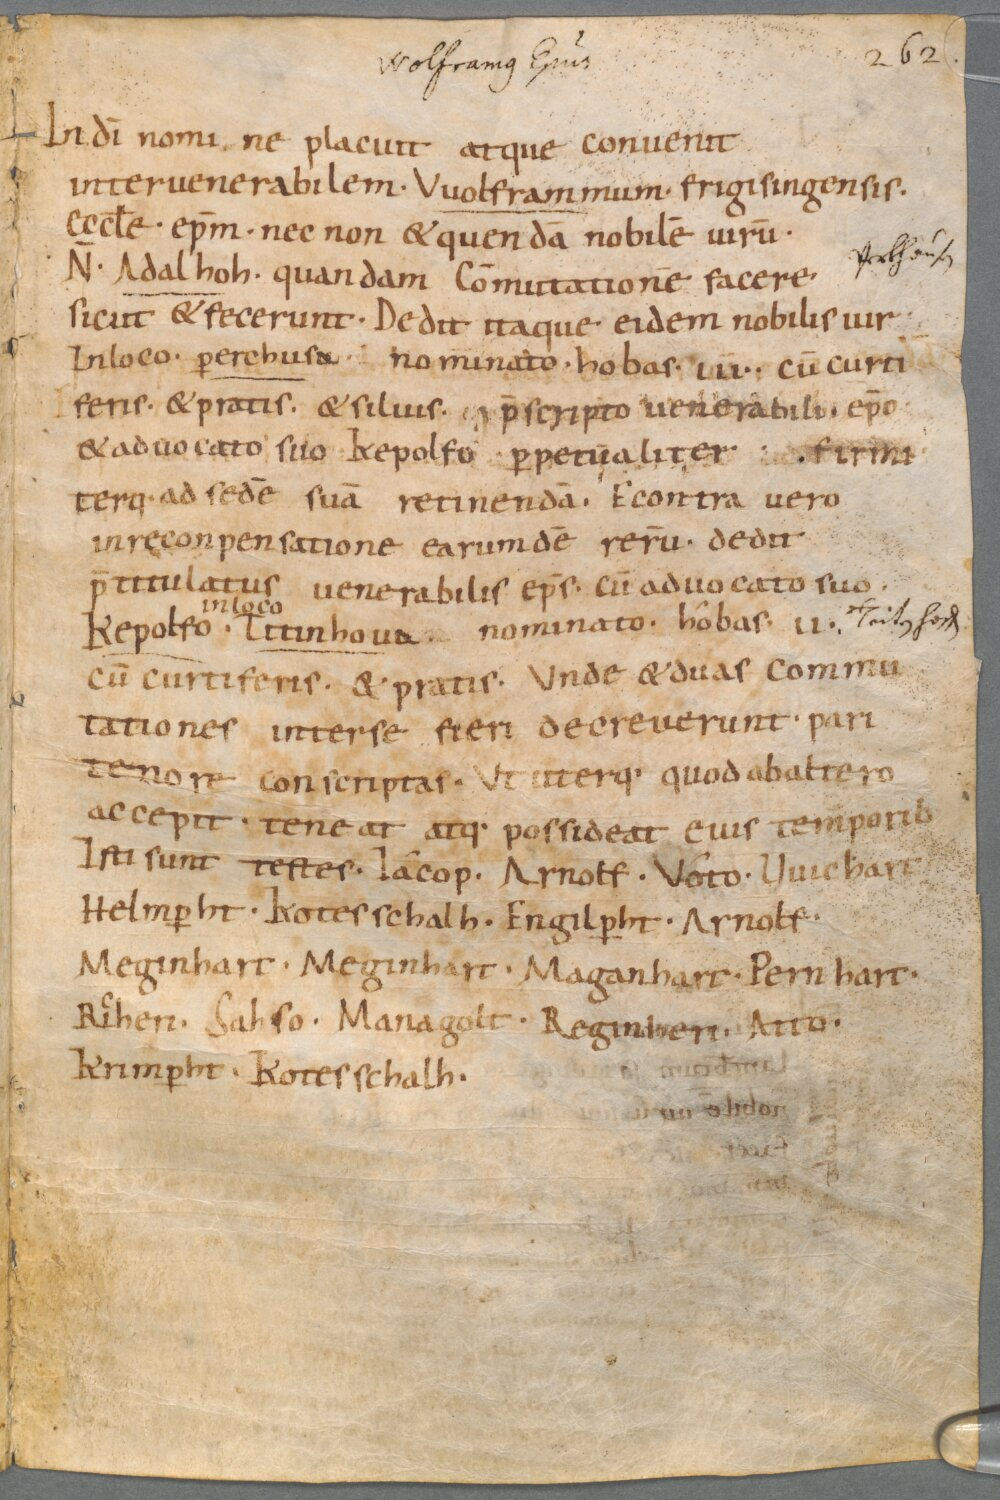 Wolframg Epūs
262.
In dī nomi ne placuit atque conuenit
inter uenerabilem · Vuolframmum · frigisingensis ·
eccłe · ep̄m · nec non & quendā nobilē uirū ·
N̄ · Adalhoh · quandam Cōmutationē facere ·
sicut & fecerunt · Dedit itaque · eidem nobilis uir
In loco · perchusa · nominato · hobas · III · cū curti
feris · & pratis · & siluis · p̄scripto uenerabili · ep̄o
& aduocato suo kepolfo ꝑpetualiter · firmi
terq· ad sedē suā retinendā · Econtra vero
in reconpensatione earumdē rerū · dedit
p̄titulatus uenerabilis ep̄s · cū aduocato suo ·
in loco
kepolfo · Titinhoua nominato · hobas · II ·
cū curtiferis · & pratis · Vnde & duas commu
tationes inter se fieri decreuerunt · pari
tenore conscriptas · Vt uterq· quod ab altero
accepit · teneat atq· possideat euis temporib
Isti sunt testes · Iacop · Arnolf · Voto · Uuichart
Helmꝑht · kotesschalh · Engilꝑht · Arnolf ·
Meginhart · Meginhart · Maganhart · Pernhart ·
Riheri · Sahso · Managolt · Reginheri · Atto ·
krimꝑht · kotesschalh ·